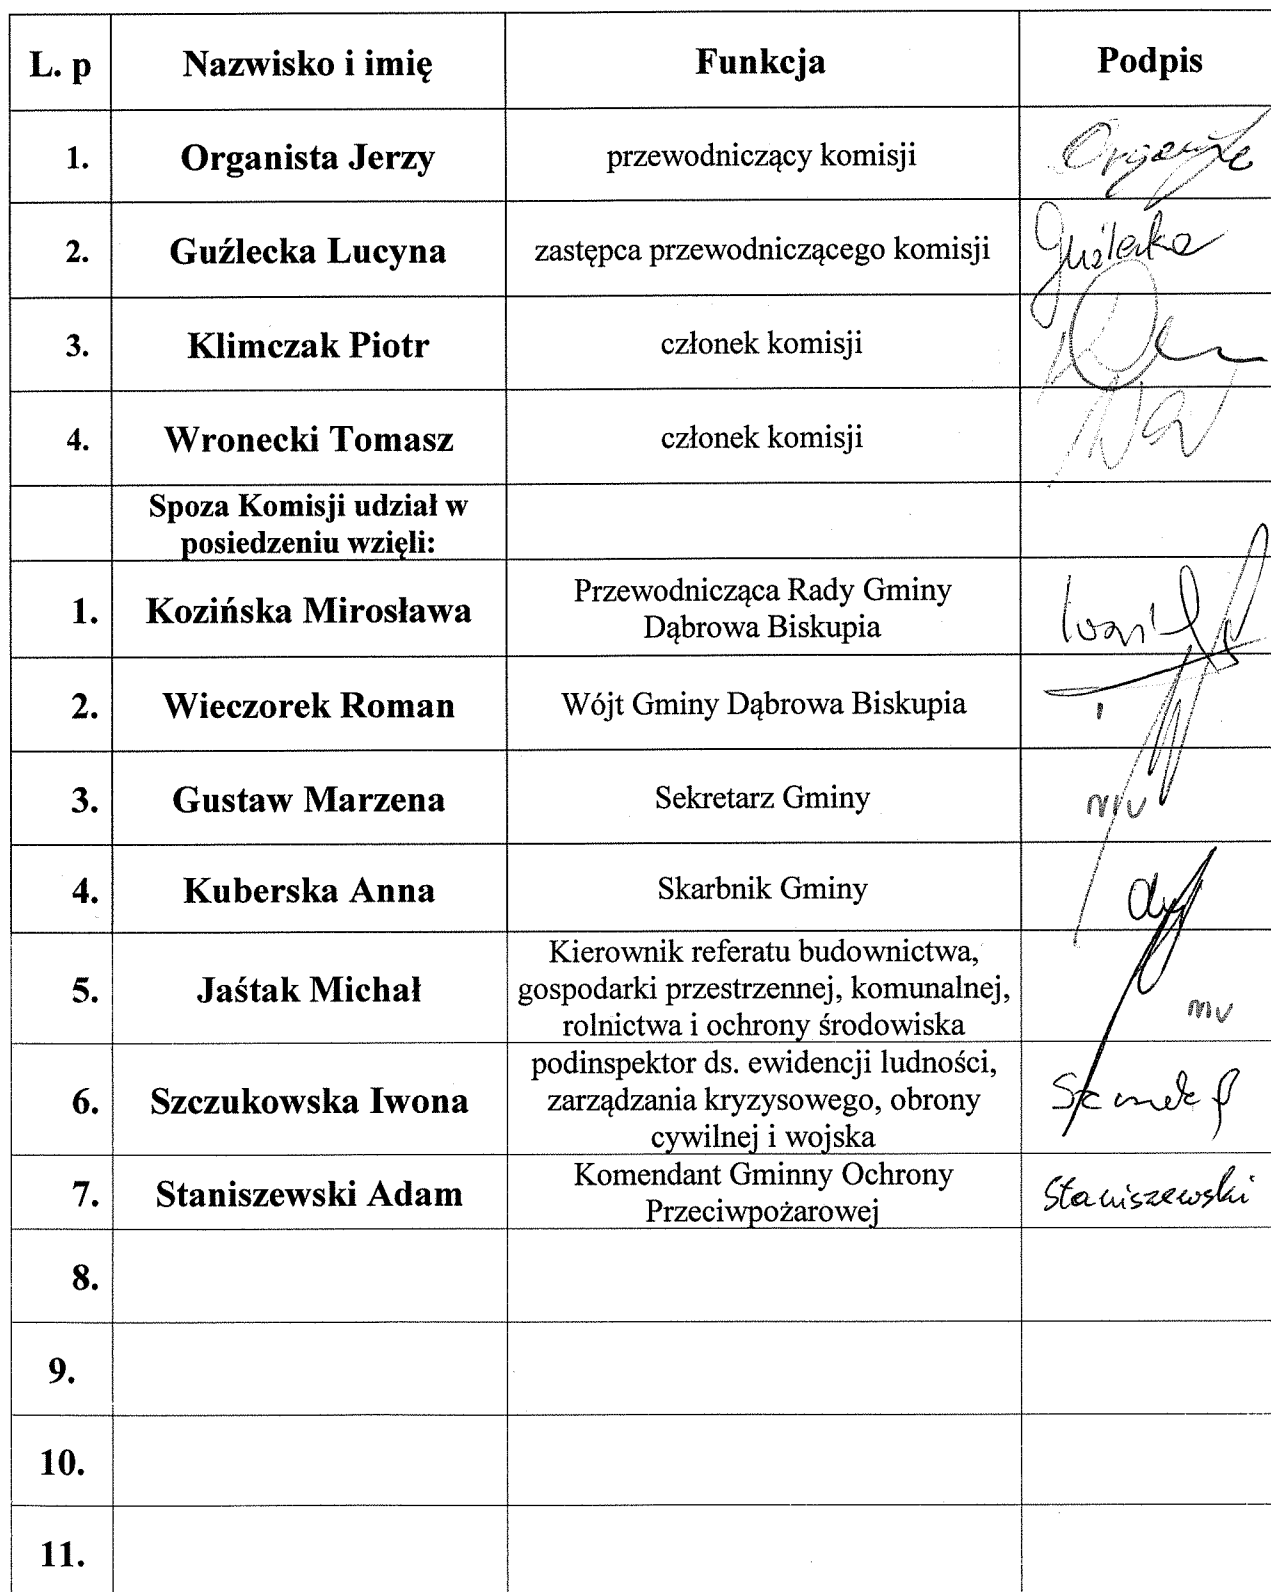 L. p Nazwisko i imię Funkcja Podpis
1. Organista Jerzy przewodniczący komisji
2. Guźlecka Lucyna zastępca przewodniczącego komisji Guźlecka
3. Klimczak Piotr członek komisji
4. Wronecki Tomasz członek komisji
Spoza Komisji udział w
posiedzeniu wzięli:
1. Kozińska Mirosława Przewodnicząca Rady Gminy
Dąbrowa Biskupia
2. Wieczorek Roman Wójt Gminy Dąbrowa Biskupia
3. Gustaw Marzena Sekretarz Gminy
4. Kuberska Anna Skarbnik Gminy
5. Jaśtak Michał Kierownik referatu budownictwa,
gospodarki przestrzennej, komunalnej,
rolnictwa i ochrony środowiska
6. Szczukowska Iwona podinspektor ds. ewidencji ludności,
zarządzania kryzysowego, obrony
cywilnej i wojska
7. Staniszewski Adam Komendant Gminny Ochrony
Przeciwpożarowej Staniszewski
8.
9.
10.
11.